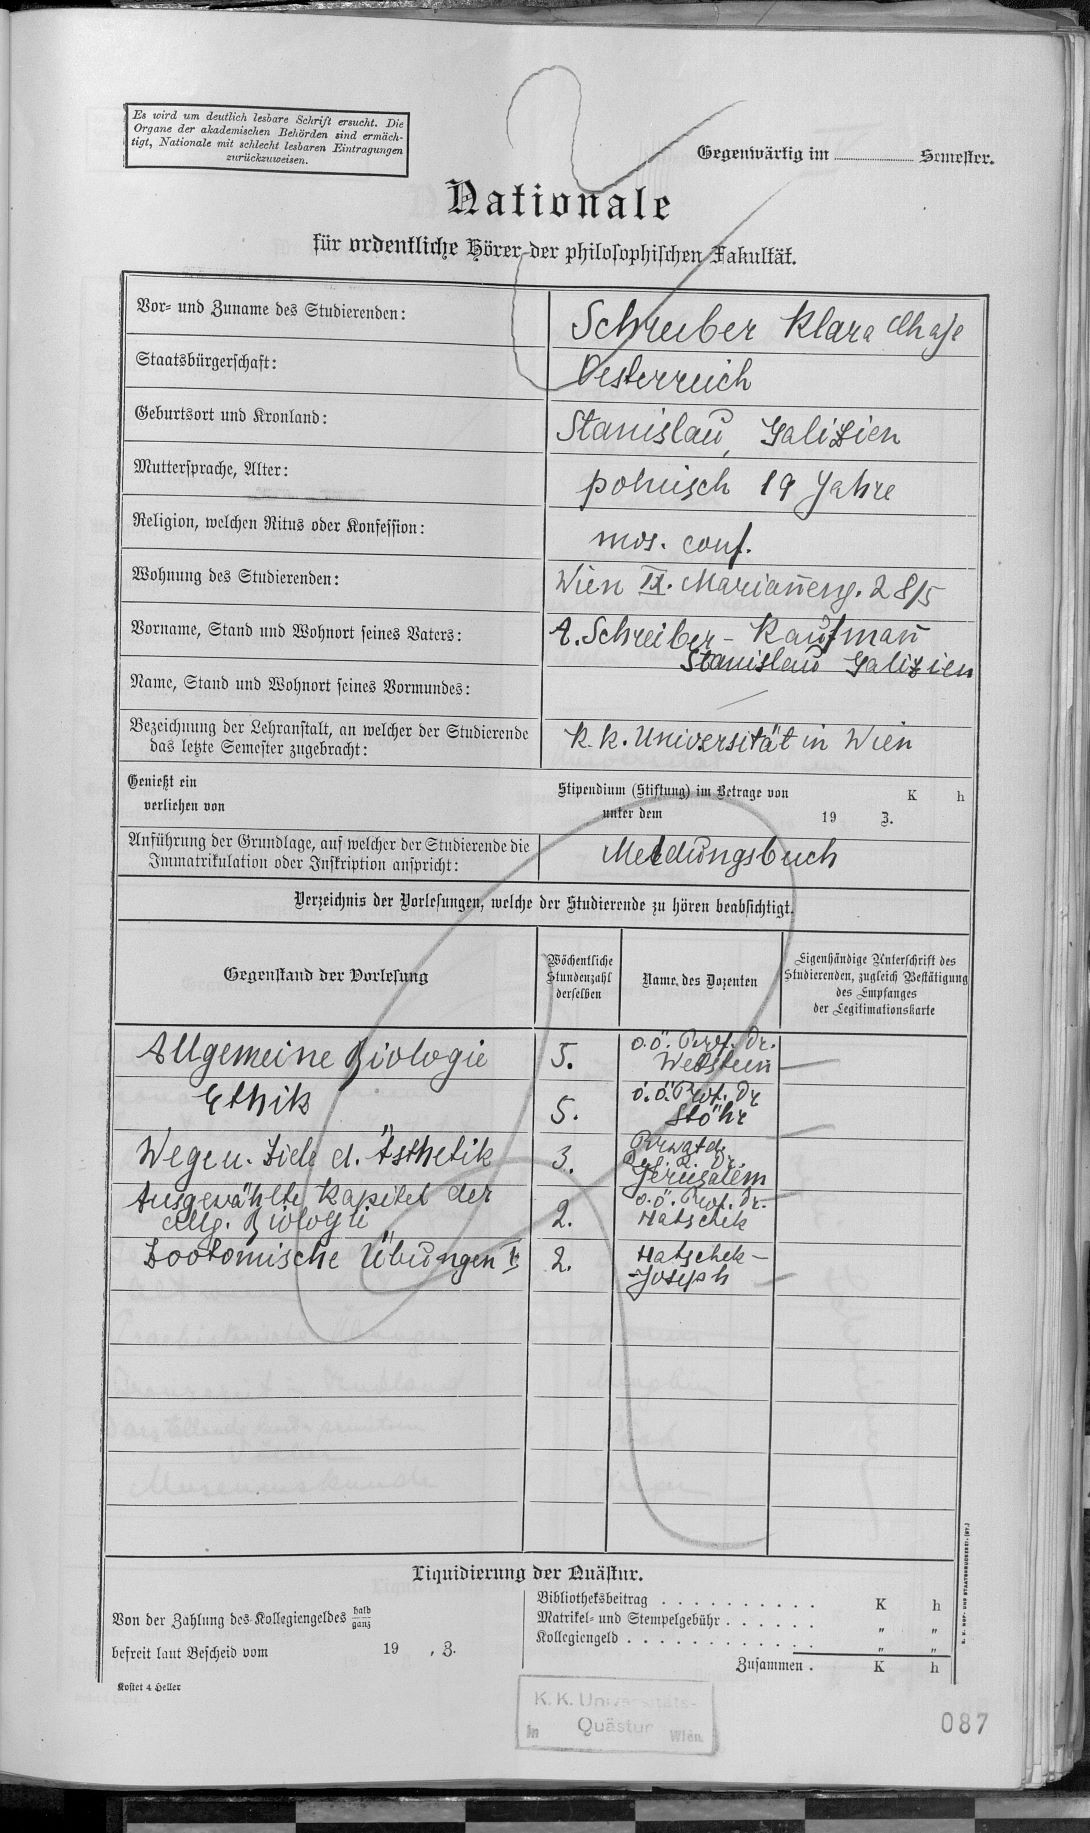 Es wird um deutlich lesbare Schrift ersucht. Die
Organe der akademischen Behörden sind ermäch-
tigt, Nationale mit schlecht lesbaren Eintragungen
zurückzuweisen.
Gegenwärtig im Semester.
Nationale
für ordentliche Hörer der philosophischen Fakultät.
Vor- und Zuname des Studierenden: Schreiber Klara Chaje
Staatsbürgerschaft: Oesterreich
Geburtsort und Kronland: Stanislau, Galizien
Muttersprache, Alter: polnisch 19 Jahre
Religion, welchen Ritus oder Konfession: mos. conf.
Wohnung des Studierenden: Wien IX. Marianneng. 28/5
Vorname, Stand und Wohnort seines Vaters: A. Schreiber - Kaufmann
Stanislau Galizien
Name, Stand und Wohnort seines Vormundes:
Bezeichnung der Lehranstalt, an welcher der Studierende
das letzte Semester zugebracht: k. k. Universität in Wien
Genießt ein Stipendium (Stiftung) im Betrage von K h
verliehen von unter dem 19 Z.
Anführung der Grundlage, auf welcher der Studierende die
Immatrikulation oder Inskription anspricht: Meldungsbuch
Verzeichnis der Vorlesungen, welche der Studierende zu hören beabsichtigt.
Gegenstand der Vorlesung
Wöchentliche
Stundenzahl
derselben
Name des Dozenten
Eigenhändige Unterschrift des
Studierenden, zugleich Bestätigung
des Empfanges
der Legitimationskarte
Allgemeine Biologie 5. o.ö. Prof. Dr.
Wettstein
Ethik 5. o.ö. Prof. Dr
Stöhr
Wege u. Ziele d. Ästhetik 3. Privatd.
Dr.
Jerusalem
Ausgewählte Kapitel der
allg. Biologie 2. o.ö. Prof. Dr.
Hatschek
Zootomische Übungen 2. Hatschek -
Joseph
Liquidierung der Quästur.
Von der Zahlung des Kollegiengeldes halb
ganz
befreit laut Bescheid vom 19 , Z.
Bibliotheksbeitrag . . . . . . . . . . . K h
Matrikel- und Stempelgebühr . . . . . . " "
Kollegiengeld . . . . . . . . . . . . . " "
Zusammen . K h
Kostet 4 Heller
K. K. HOF- UND STAATSDRUCKEREI. (NY.)
K. K. Universitäts-
Quästur
in Wien.
087